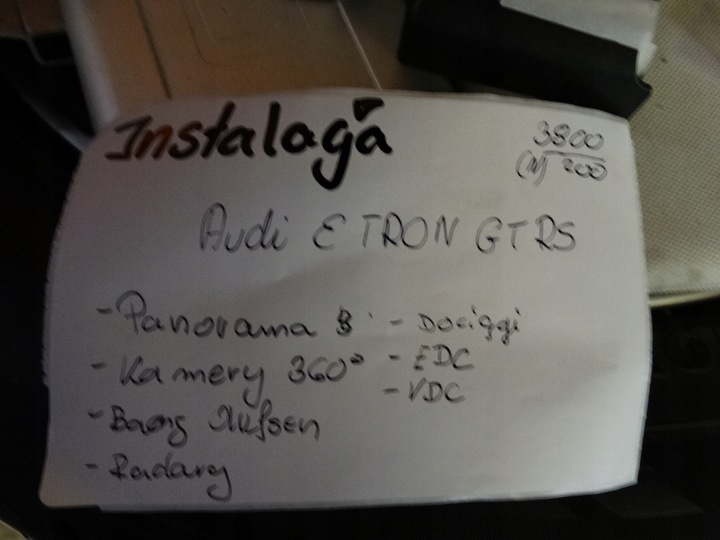 Instalacja
3800
(N) 200
Audi E TRON GT RS
- Panorama B
- Kamery 360°
- Bang Olufsen
- Radary
- Dociągi
- EDC
- VDC